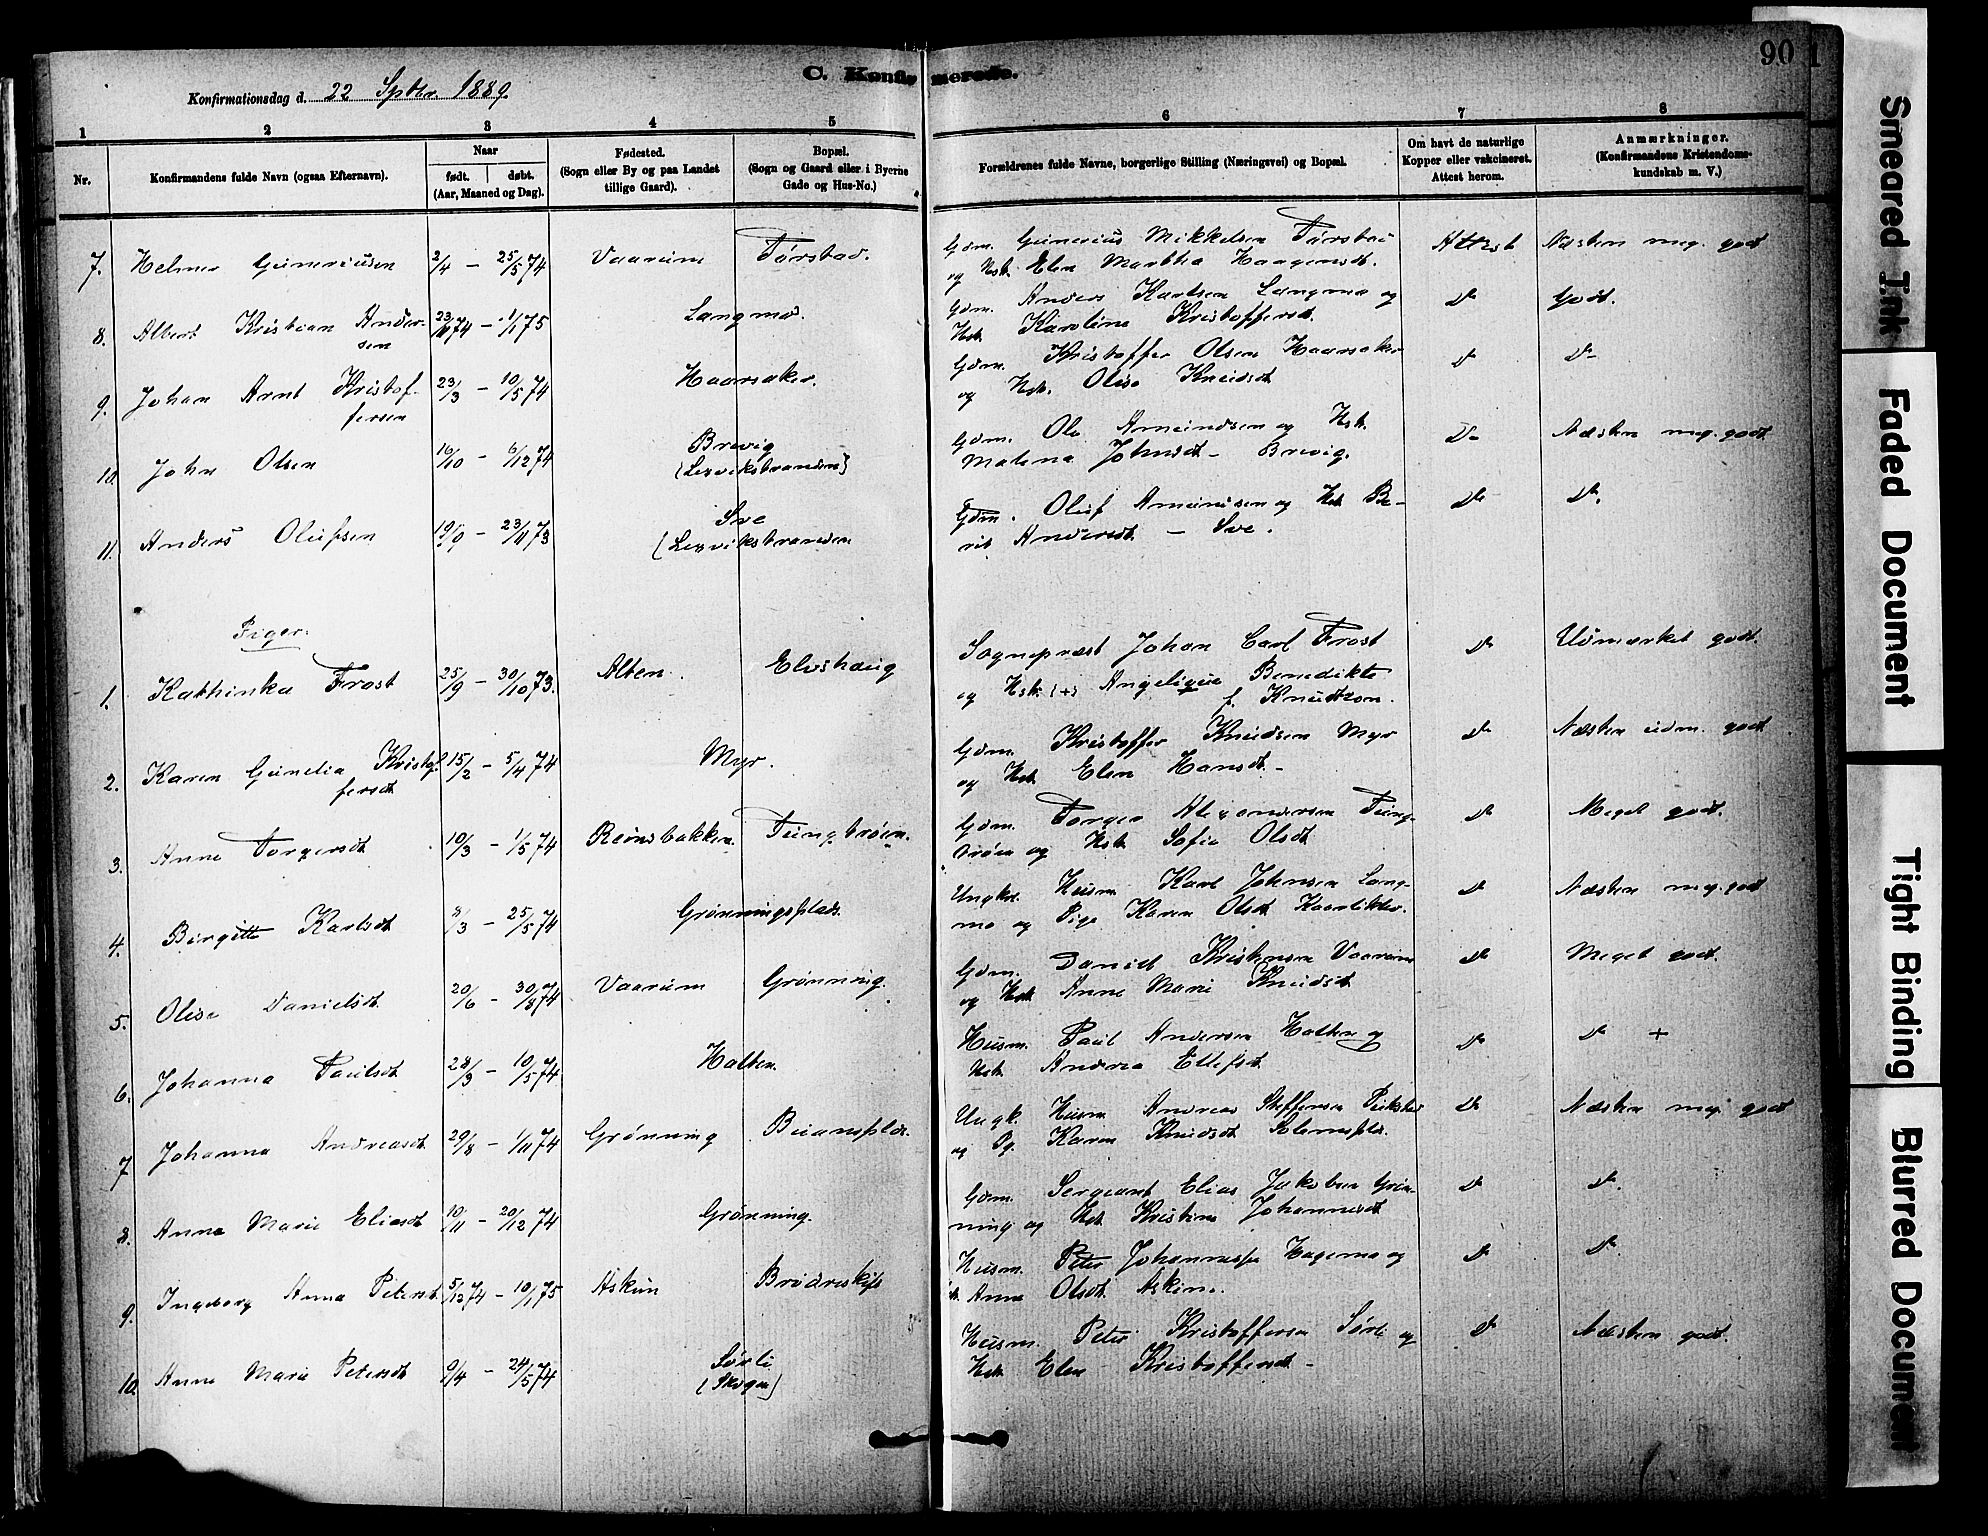 C. Konfirmerede.
90
Konfirmationsdag d. 22 Septbr. 1889.
1 2 3 4 5 6 7 8
Nr. Konfirmandens fulde Navn (ogsaa Efternavn). Naar født. døbt. (Aar, Maaned og Dag). Fødested. (Sogn eller By og paa Landet tillige Gaard). Bopæl. (Sogn og Gaard eller i Byerne Gade og Hus-No.) Forældrenes fulde Navne, borgerlige Stilling (Næringsvei) og Bopæl. Om havt de naturlige Kopper eller vakcineret. Attest herom. Anmærkninger. (Konfirmandens Kristendomskundskab m. V.)
7. Helmer Guneriusen 2/4 - 25/5 74 Vaarum Tørstad. Gdm. Gunerius Mikkelsen Tørstad Attest Næsten meg. godt
og Hst. Elen Martha Haagensdt.
8. Albert Kristian Ander- 23/11 74 - 1/1 75 Langmo. Gdm. Anders Karlsen Langmo og Do Godt.
sen Hst. Karoline Kristoffersdt.
9. Johan Arnt Kristof- 23/3 - 10/5 74 Haarsaker. Gdm. Kristoffer Olsen Haarsaker Do Do
fersen og Hst. Olise Knudsdt
10. John Olsen 16/10 - 6/12 74 Brevig Gdm. Ole Amundsen og Hst. Do Næsten meg. godt
(Lesviksstranden) Malena Johnsdt - Brevig.
11. Anders Olufsen 19/9 - 23/11 73 Sve Gdm. Oluf Amundsen og Hst Be- Do Do.
(Lesviksstranden rit Andersdt - Sve.
Piger.
1. Kathinka Frost 25/9 - 30/10 73. Alten. Elvshaug Sognepræst Johan Carl Frost Do Udmærket godt.
og Hst. (+) Angelique Benedikte
f. Knudtzon.
2. Karen Gunelia Kristof- 15/2 - 5/4 74 Myr. Gdm. Kristoffer Knudsen Myr Do Næsten udm. godt
fersdt og Hst. Elen Hansdt -
3. Anne Torgersdt 10/3 - 1/5 74 Reinsbakken Tungtrøen. Gdm. Torger Alexandersen Tung- Do Meget godt.
trøen og Hst Sofie Olsdt
4. Birgitte Karlsdt 8/3 - 25/5 74 Grønningsplads. Ungkr. Husm. Karl Johnsen Lang- Do Næsten meg. godt
mo og Pige Karen Olsdt
5. Olise Danielsdt 20/6 - 30/8 74 Vaarum Grønning. Gdm. Daniel Kristensen Vaarum Do Meget godt.
og Hst. Anne Marie Knudsdt
6. Johanna Paulsdt 28/3 - 10/5 74 Halten. Husm. Paul Andersen Halten og Do Do +
Hst. Andrea Ellefsdt
7 Johanna Andreasdt 29/8 - 1/11 74 Grønning Beiansplds. Ungk. Husm Andreas Steffensen Do Næsten meg. godt
og Pg. Karen Knudsdt
8. Anna Marie Eliasdt 10/11 - 20/12 74 Grønning. Gdm. Sergeant Elias Jakobsen Grøn- Do Do.
ning og Hst. Kristine Johannesdt
9. Ingeborg Anna Petersdt. 5/12 74 - 10/1 75 Askim Husm. Peter Johannessen og Do Do.
Hst. Anne Olsdt Askim.
10. Anne Marie Petersdt 9/4 - 24/5 74 Sørli Husm. Peter Kristoffersen Sørli og Do Næsten godt.
(Skogn) Hst. Elen Kristoffersdt -
Smeared Ink
Faded Document
Tight Binding
Blurred Document